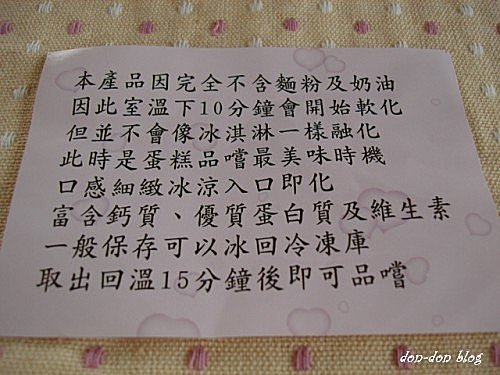 本產品因完全不含麵粉及奶油
因此室溫下10分鐘會開始軟化
但並不會像冰淇淋一樣融化
此時是蛋糕品嚐最美味時機
口感細緻冰涼入口即化
富含鈣質、優質蛋白質及維生素
一般保存可以冰回冷凍庫
取出回溫15分鐘後即可品嚐
don-don blog